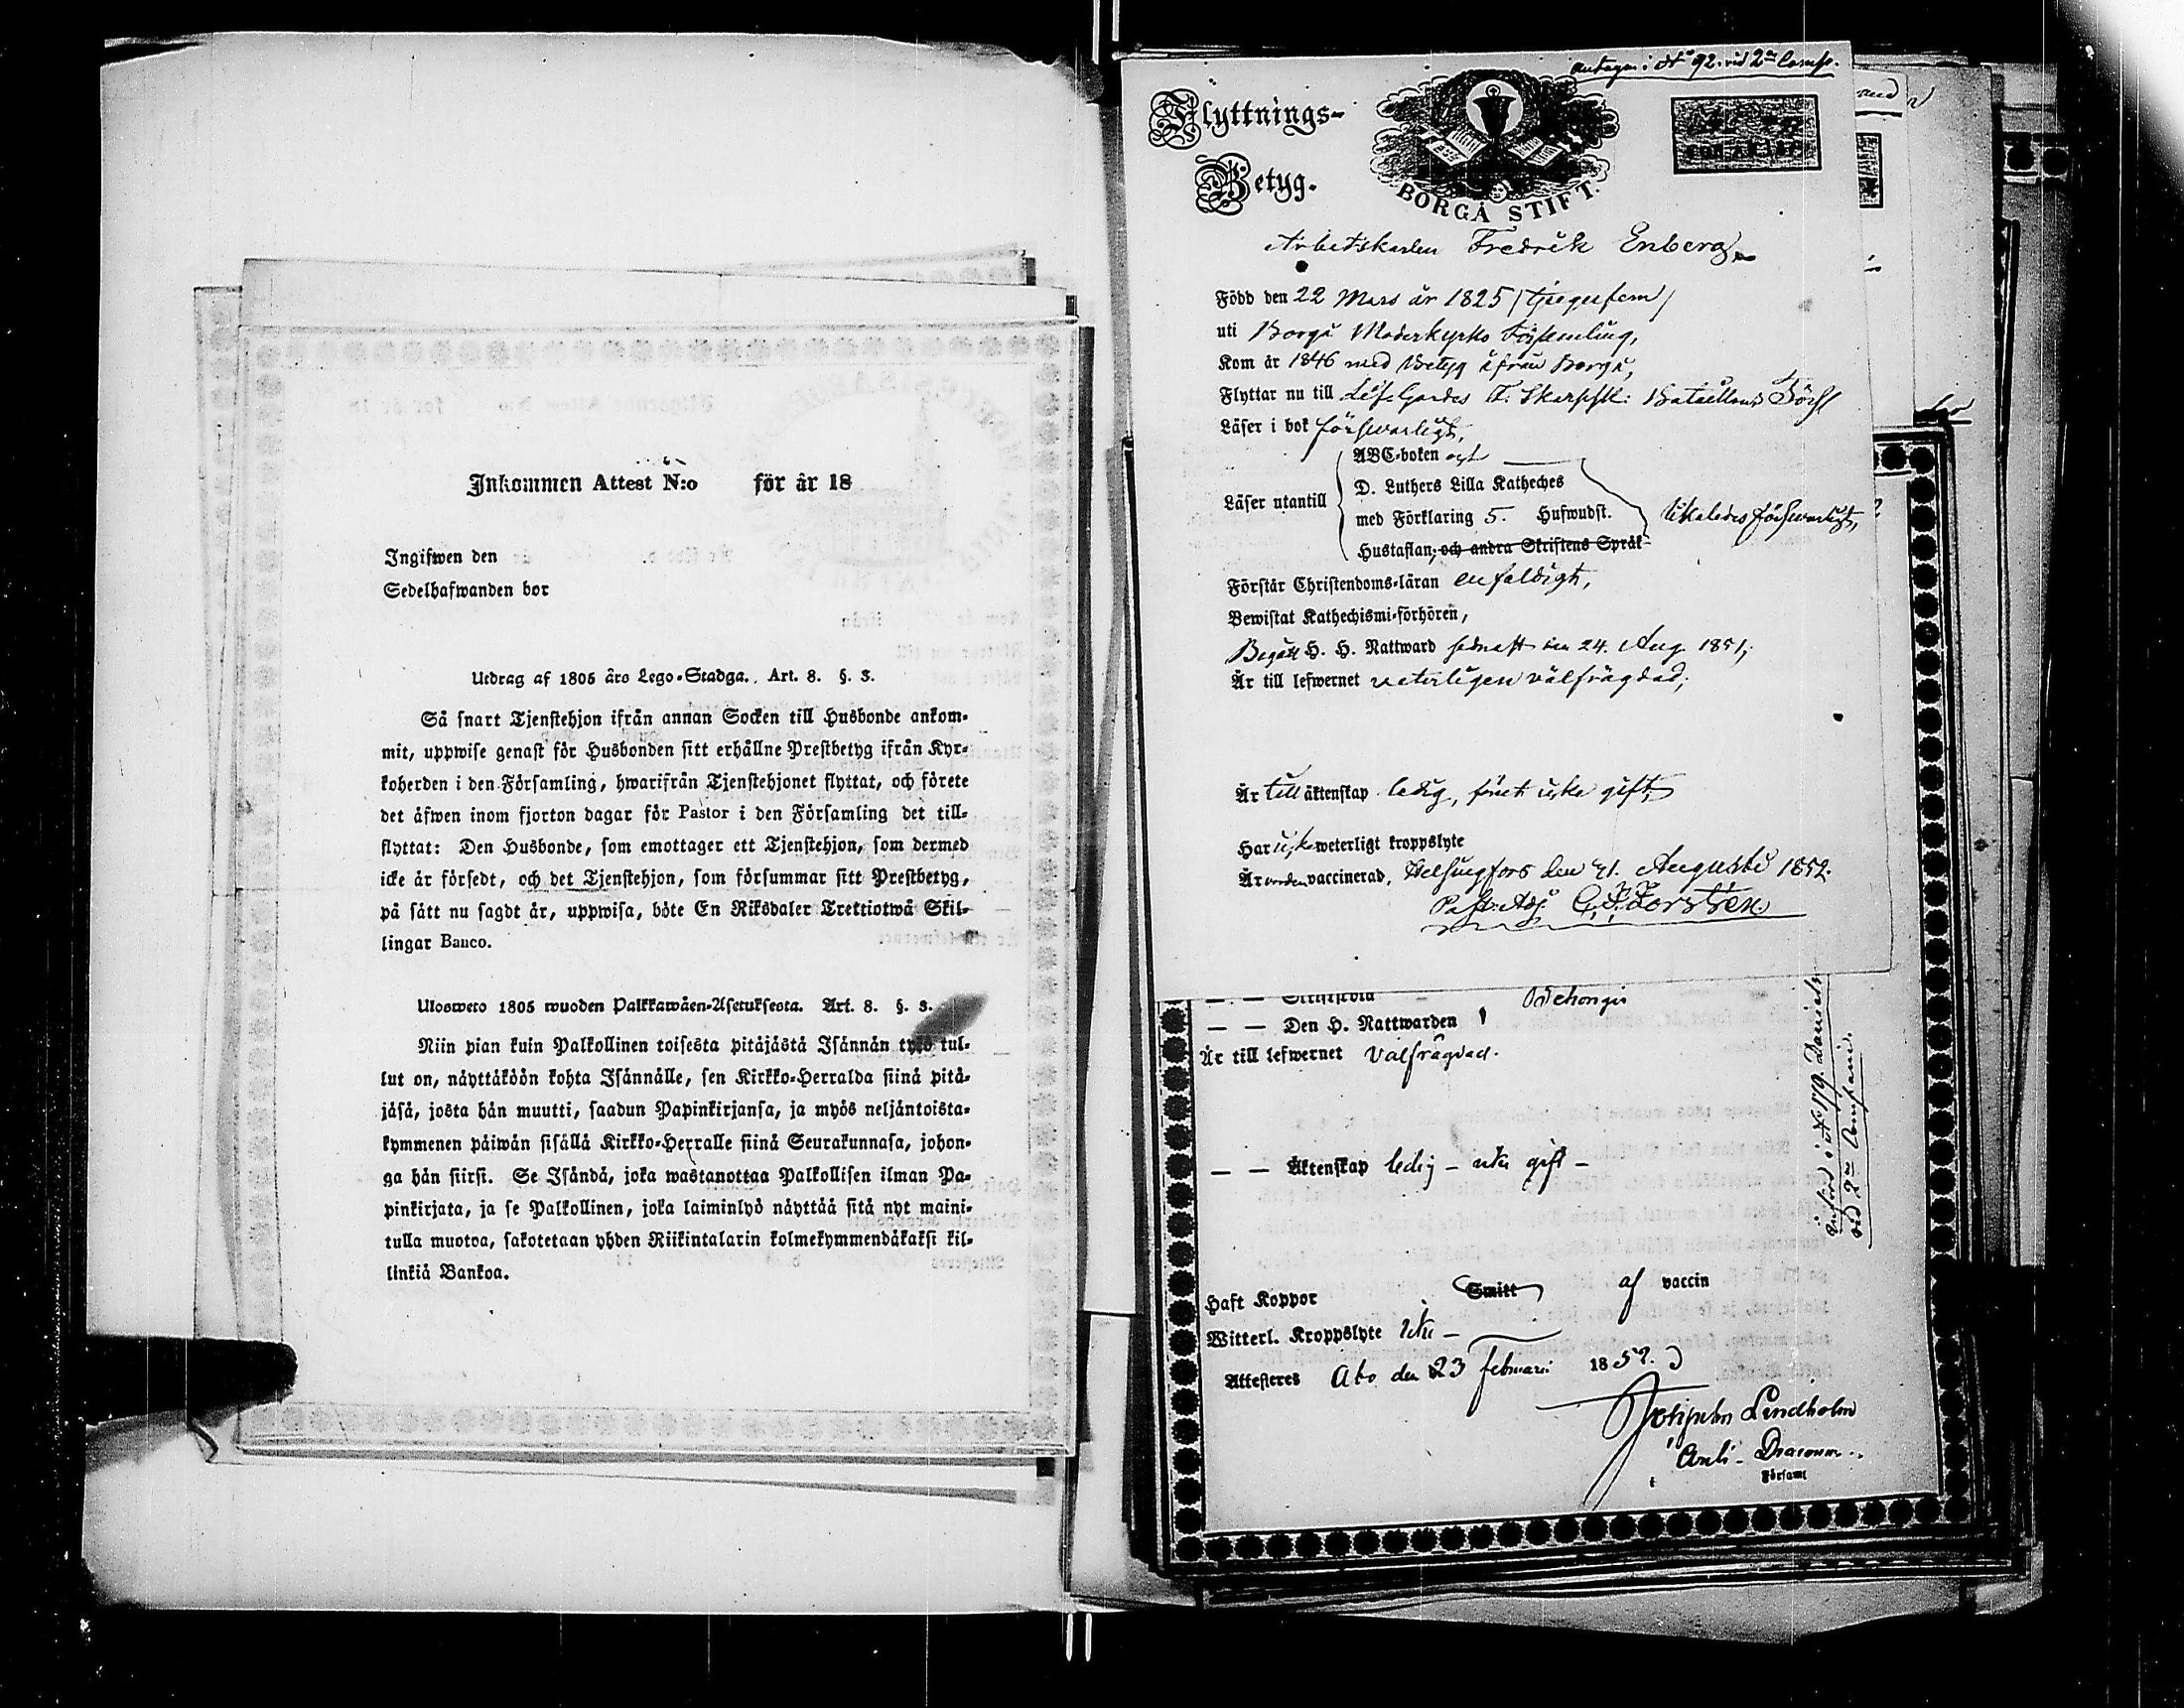 Inkommen Attest N:o för år 18
Ingifwen den
Sedelhafwanden bor
Utdrag af 1805 års Lego-Stadga. Art. 8. §. 3.
Så snart Tjenstehjon ifrån annan Socken till Husbonde ankom-
mit, uppwise genast för Husbonden sitt erhållne Prestbetyg ifrån Kyr-
koherden i den Församling, hwarifrån Tjenstehjonet flyttat, och förete
det äfwen inom fjorton dagar för Pastor i den Församling det till-
flyttat: Den Husbonde, som emottager ett Tjenstehjon, som dermed
icke är försedt, och det Tjenstehjon, som försummar sitt Prestbetyg,
på sätt nu sagdt är, uppwisa, böte En Riksdaler Trettiotwå Skil-
lingar Banco.
Ulosweto 1805 wuoden Palkkawäen-Asetuksesta. Art. 8. §. 3.
Niin pian kuin Palkollinen toisesta pitäjästä Isännän tykö tul-
lut on, näyttäköön kohta Isännälle, sen Kirkko-Herralda siinä pitä-
jäsä, josta hän muutti, saadun Papinkirjansa, ja myös neljäntoista-
kymmenen päiwän sisällä Kirkko-Herralle siinä Seurakunnasa, johon-
ga hän siirsi. Se Isändä, joka wastanottaa Palkollisen ilman Pa-
pinkirjata, ja se Palkollinen, joka laiminlyö näyttää sitä nyt maini-
tulla muotoa, sakotetaan yhden Riikintalarin kolmekymmendäkaksi kil-
linkiä Bankoa.
antagen i No 92 vid 2ne Comp.
Flyttnings-
Betyg.
BORGÅ STIFT.
Arbetskarlen Fredrik Enberg,
Född den 22 Mars år 1825 /tjugufem/
uti Borgå Moderkyrko Församling,
Kom år 1846 med Betyg ifrån Borgå,
Flyttar nu till Lifs Gardes F. Skarpsk: Bataillons Förs
Läser i bok försvarligt,
ABC-boken
Läser utantill D. Luthers Lilla Katheches
med Förklaring 5. Hufwudst. likaledes försvarligt,
Hustaflan, och andra Skriftens Språk
Förstår Christendoms-läran enfaldigt,
Bewistat Kathechismi-förhören,
Begått H. H. Nattward sednast den 24. Aug 1851,
Är till lefwernet veterligen välfrägdad,
Är till äktenskap ledig, förut icke gift,
Har icke weterligt kroppslyte
Är worden vaccinerad, Helsingfors den 31. Augusti 1852.
Past. Adj.
Behörigen
— — Den H. Nattwarden
Är till lefwernet Välfrägdad.
— — Äktenskap ledig – icke gift –
Haft Koppor Smitt af vaccin
Witterl. Kroppslyte icke –
Attesteres Abo den 23 februari 1852.
Lindholm
Församl
införd i No 179. Daniels
vid 2ne Compani.